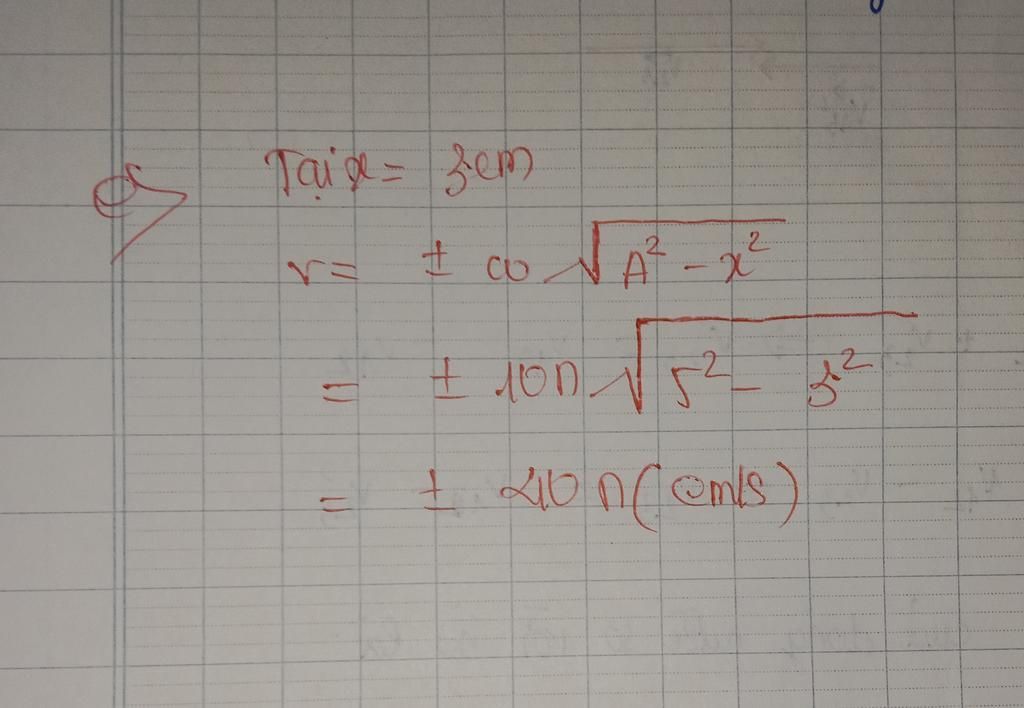 c) Tại x = 3cm
v = ± ω √(A² - x²)
= ± 10π √(5² - 3²)
= ± 40π (cm/s)